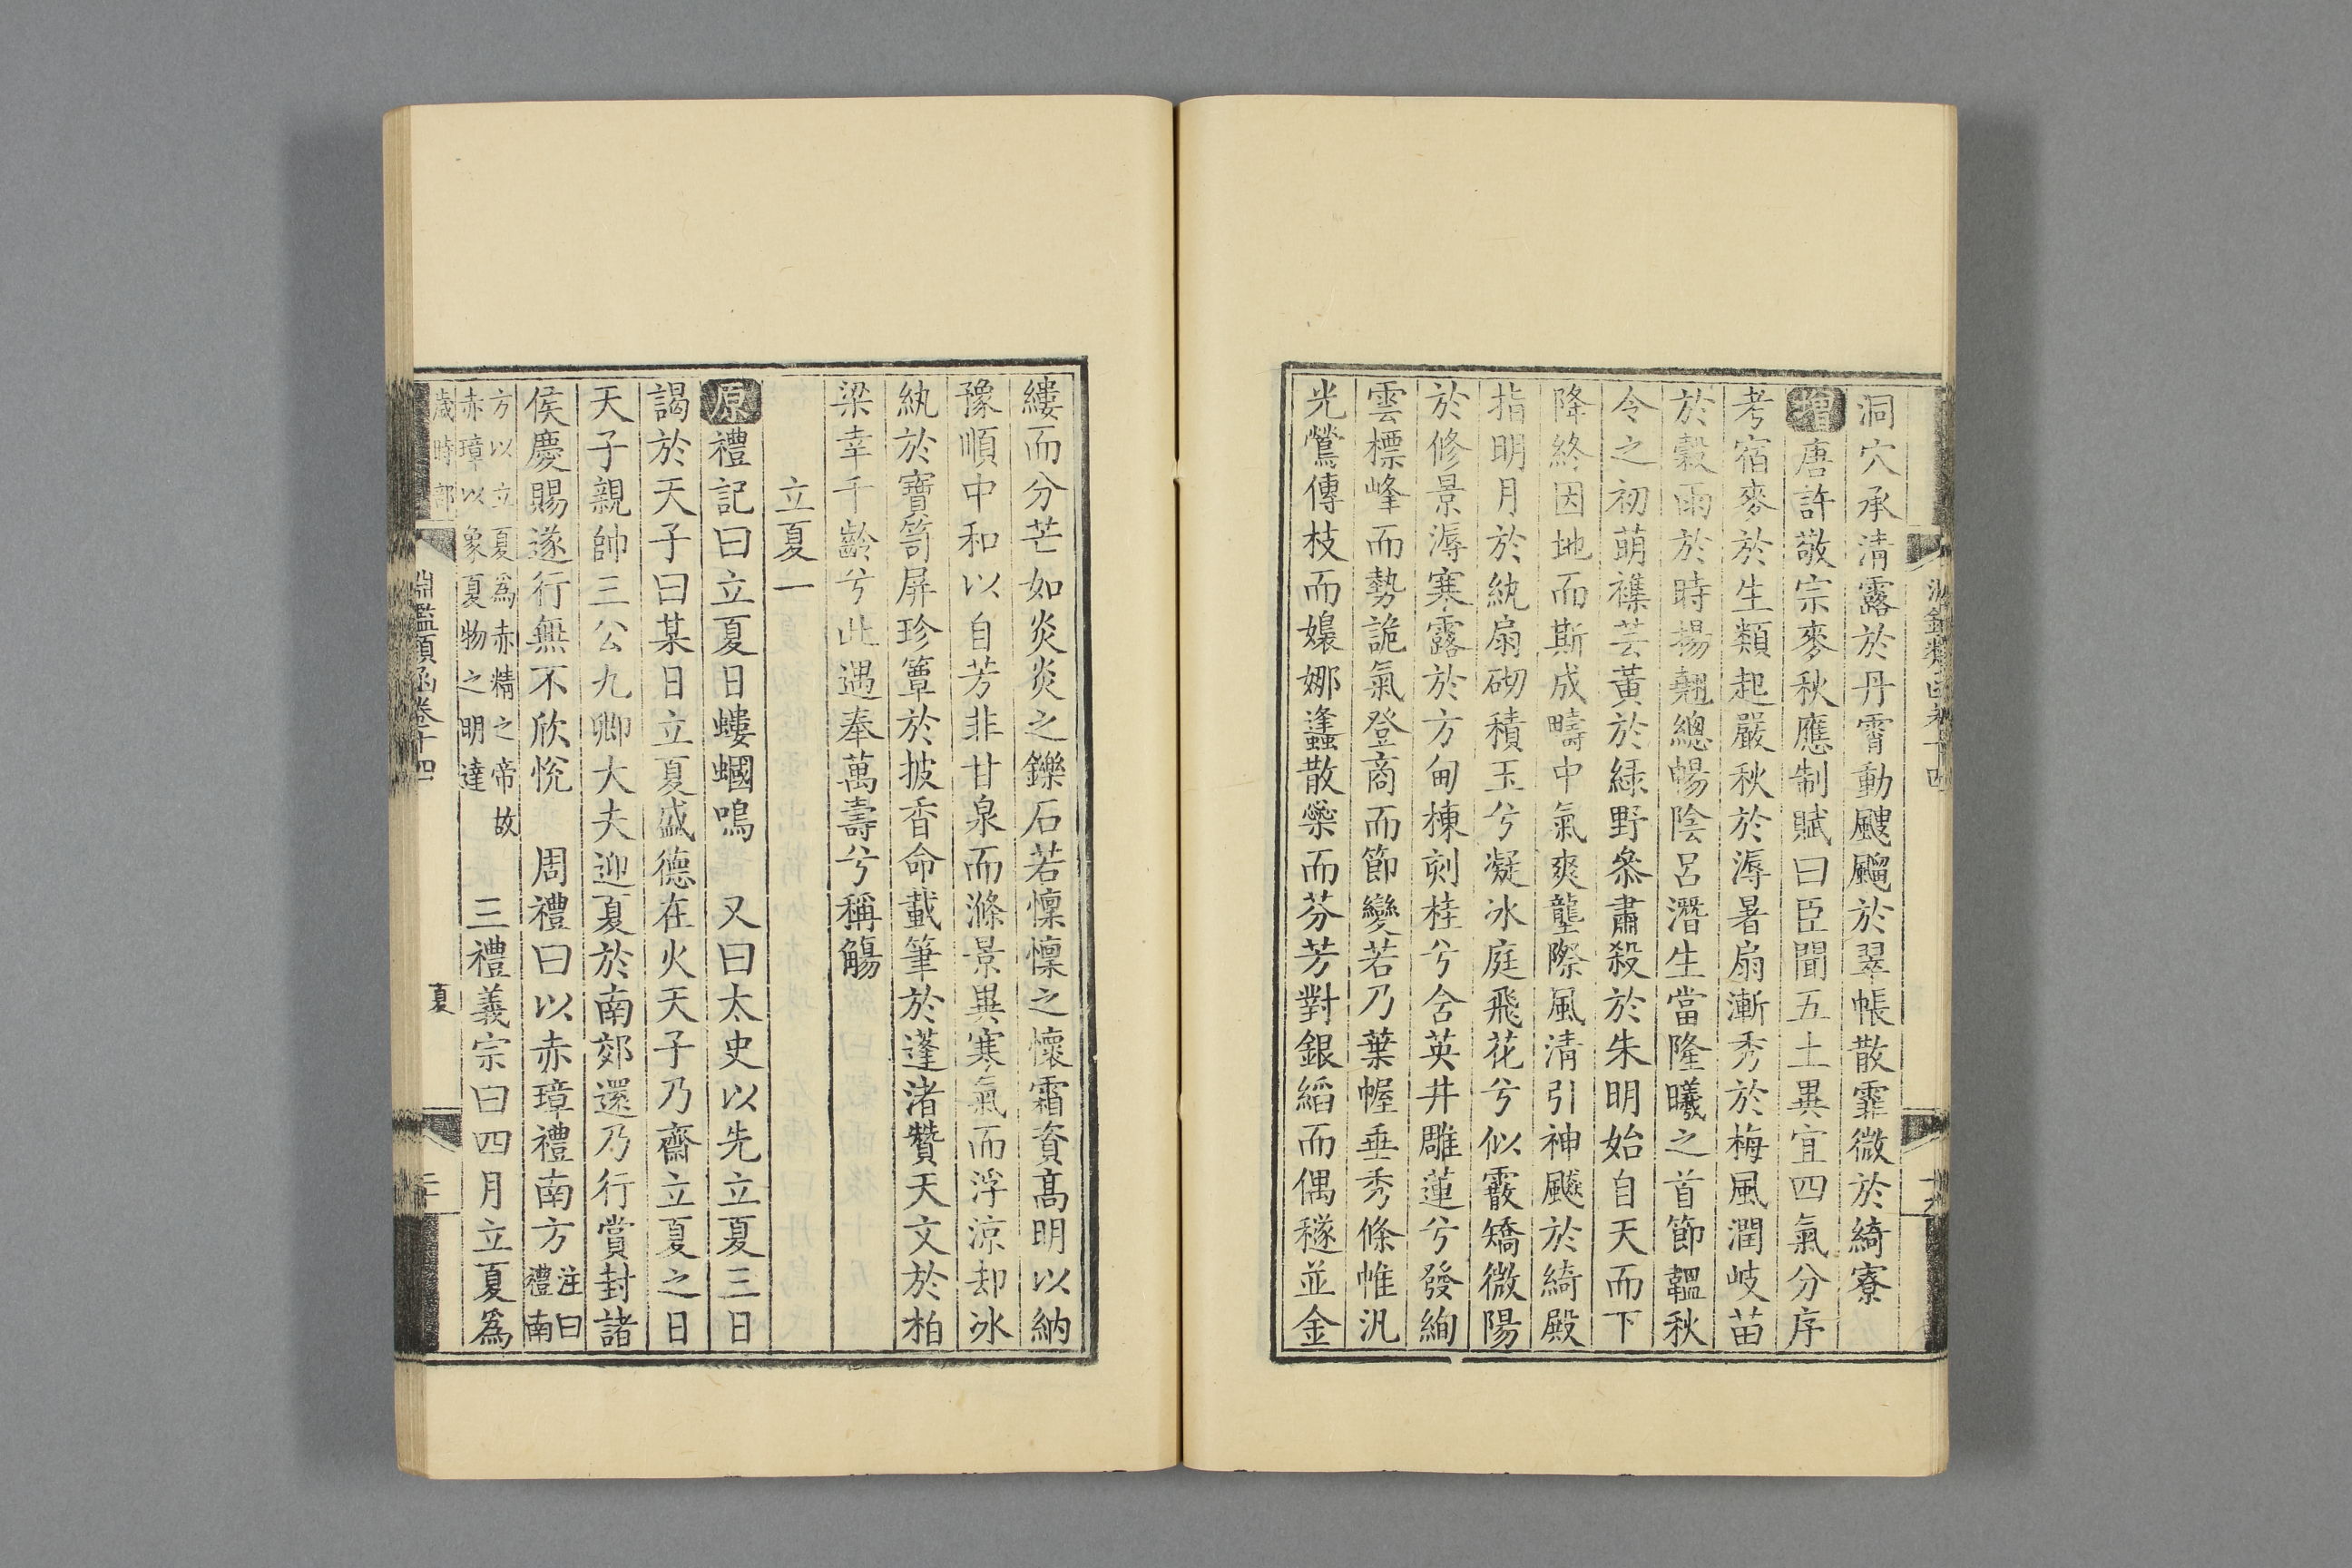 洞穴承清露於丹霄動颼飀於翠帳散霏微於綺寮
增唐許敬宗麥秋應制賦曰臣聞五土異宜四氣分序
考宿麥於生類起嚴秋於溽暑扇漸秀於梅風潤岐苗
於穀雨於時揚翹總暢陰呂潛生當隆曦之首節韞秋
令之初萌襍芸黃於綠野叅肅殺於朱明始自天而下
降終因地而斯成疇中氣爽壟際風清引神飈於綺殿
指明月於紈扇砌積玉兮凝冰庭飛花兮似霰矯微陽
於修景溽寒露於方甸棟刻桂兮含英井雕蓮兮發絢
雲標峰而勢詭氣登商而節變若乃葉幄垂秀條帷汎
光鶯傳枝而嬝娜蠭散蘂而芬芳對銀縚而偶穟並金
縷而分芒如炎炎之鑠石若懍懍之懷霜資高明以納
豫順中和以自芳非甘泉而滌景異寒氣而浮涼却冰
紈於寶笥屏珍簟於披香命載筆於蓬渚贊天文於柏
梁幸千齡兮此遇奉萬壽兮稱觴
立夏一
原禮記曰立夏日螻蟈鳴 又曰太史以先立夏三日
謁於天子曰某日立夏盛德在火天子乃齋立夏之日
天子親帥三公九卿大夫迎夏於南郊還乃行賞封諸
侯慶賜遂行無不欣悅 周禮曰以赤璋禮南方注曰禮南
方以立夏爲赤精之帝故赤璋以象夏物之明達 三禮義宗曰四月立夏爲
歲時部
淵鑑類函卷十四
夏